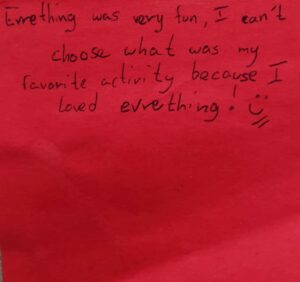 Evrething was very fun, I can't
choose what was my
favorite activity because I
loved evrething!